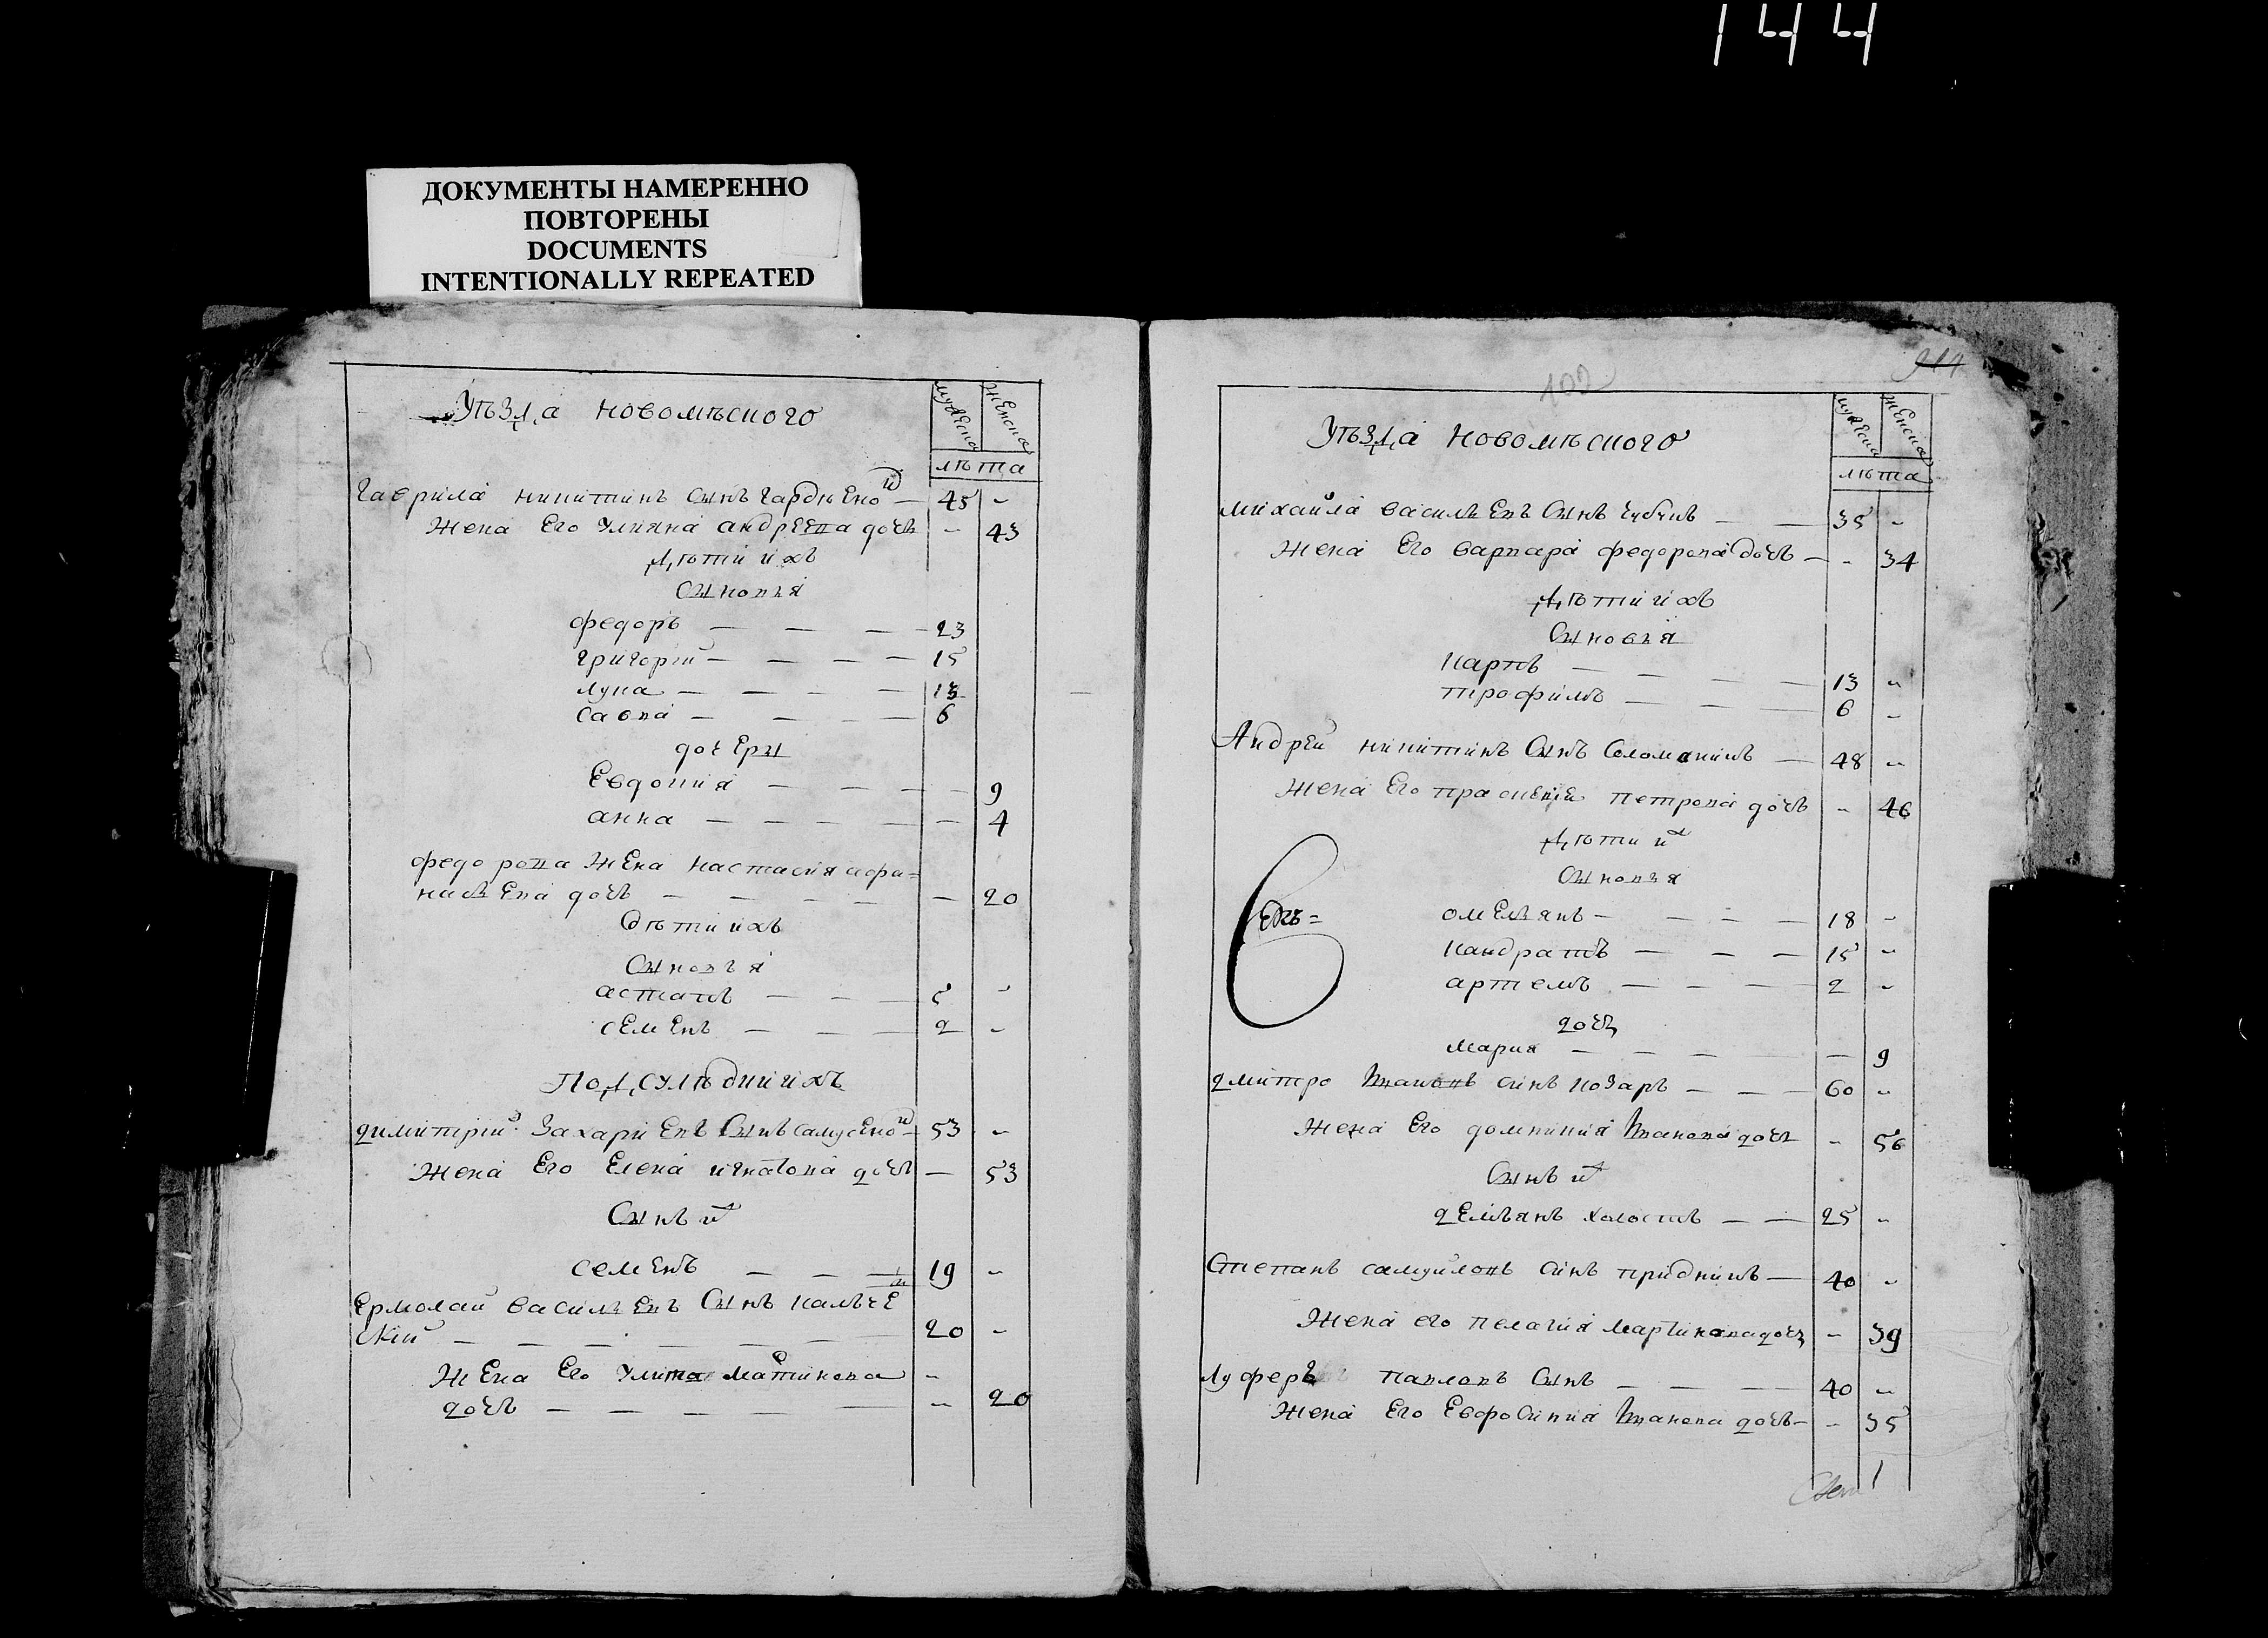 144
ДОКУМЕНТЫ НАМЕРЕННО
ПОВТОРЕНЫ
DOCUMENTS
INTENTIONALLY REPEATED
Уѣзда новомѣского
мужеска женска
лѣта
Гаврила никитинъ сынъ гардѣенко 45 -
жена его улияна андреева дочь - 43
дѣти ихъ
сыновья
федоръ 23
григорий 15
лука 13
савва 6
дочеры
Евдокия 9
анна 4
федорова жена настасия афа=
насьева дочь - 20
дѣти ихъ
сыновья
астапъ 5 -
семенъ 2 -
Подсусѣдки ихъ
димитрий захариевъ сынъ самусенко 53 -
жена его елена игнатова дочь - 53
сынъ их
семенъ 19 -
Ермолай васильевъ сынъ
ский 20 -
жена его улита
дочь - 20
102
Уѣзда новомѣского
мужеска женска
лѣта
михайла васильевъ сынъ 35 -
жена его варвара федорова дочь - 34
дѣти ихъ
сыновья
карпъ 13 -
трофимъ 6 -
Андрей никитинъ сынъ Соломахинъ 48 -
жена его параскевия петрова дочь - 46
дѣти их
сыновья
омельянъ 18 -
кандратъ 15 -
артемъ 2 -
дочь
мария - 9
дмитро Ивановъ синъ козаръ 60 -
жена его домникия Иванова дочь - 56
сынъ их
демьянъ холостъ 25 -
Степанъ самуиловъ синъ 40 -
жена его пелагия мартинова дочь - 39
Луферъ павловъ сынъ 40 -
жена его Евфросиния Иванова дочь - 35